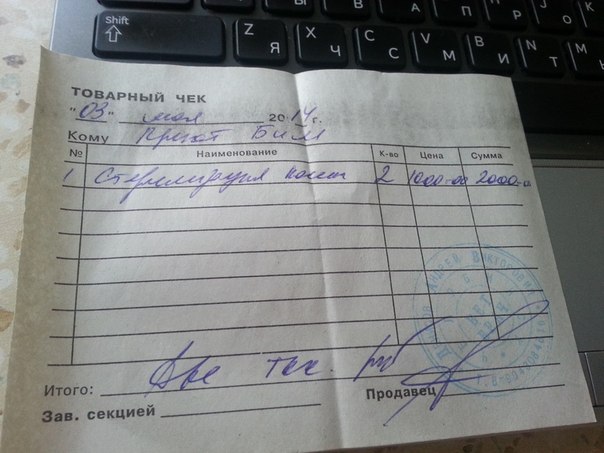 Shift
Z Я
X Ч
C С
V М
B И
N Т
ТОВАРНЫЙ ЧЕК
"03" мая 2014 г.
Кому Приют Бим
№ Наименование К-во Цена Сумма
1 Стерилизация кошки 2 1000-00 2000-00
Итого: Две тыс. руб
Зав. секцией Продавец